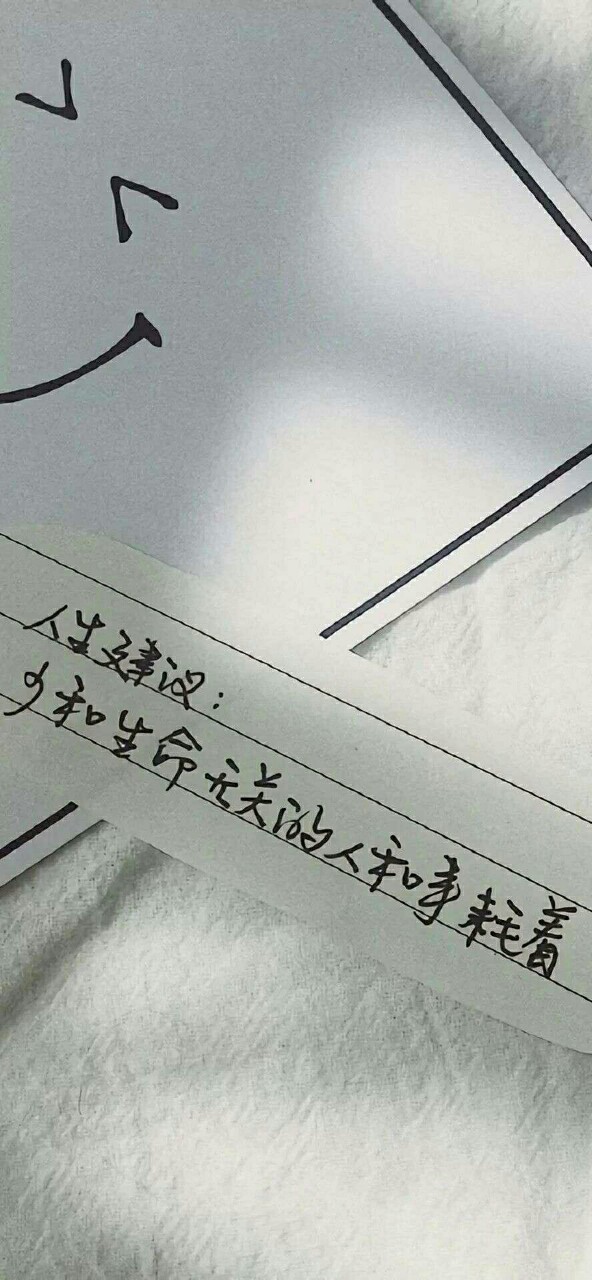 人生建议：
少和生命无关的人和事耗着